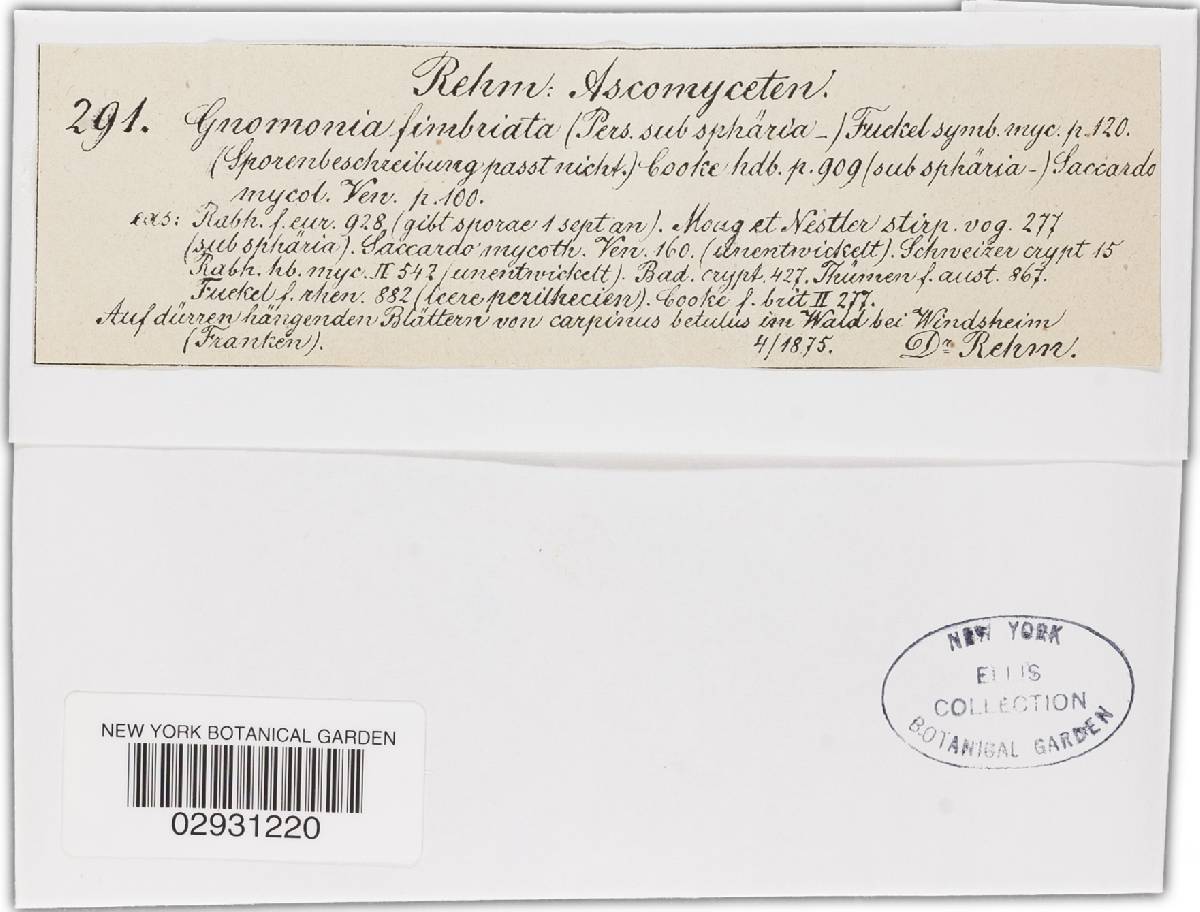 Rehm: Ascomyceten.
291. Gnomonia fimbriata (Pers. sub sphäria –) Fuckel symb. myc. p. 120.
(Sporenbeschreibung passt nicht.) Cooke hdb. p. 909 (sub sphäria –) Saccardo
mycol. Ven. p. 100.
exs: Rabh. f. eur. 928 (gibt sporae 1 sept an). Moug et Nestler stirp. vog. 277
(sub sphäria). Saccardo mycoth. Ven. 160. (unentwickelt). Schweizer crypt 15
Rabh. hb. myc. II 542 (unentwickelt). Bad. crypt. 427. Thümen f. aust. 867.
Fuckel f. rhen. 882 (leere perithecien). Cooke f. brit II 277.
Auf dürren hängenden Blättern von carpinus betulus im Wald bei Windsheim
(Franken). 4/1875. Dr. Rehm.
NEW YORK
ELLIS
COLLECTION
BOTANICAL GARDEN
NEW YORK BOTANICAL GARDEN
02931220